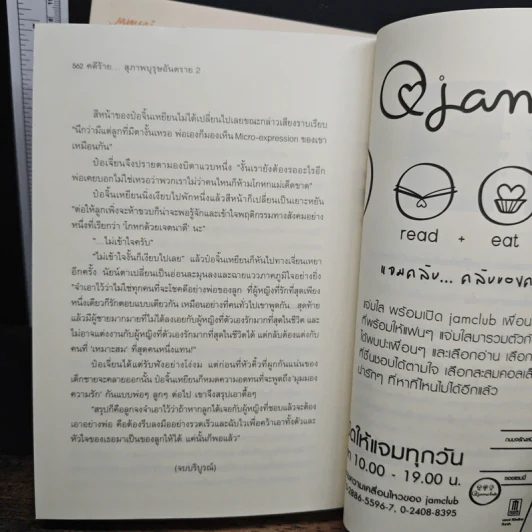 562 คดีร้าย... สุภาพบุรุษอันตราย 2
สีหน้าของป๋อจิ้นเหยียนไม่ได้เปลี่ยนไปเลยขณะกล่าวเสียงราบเรียบ
"นึกว่ามีแต่ลูกที่มีตางั้นเหรอ พ่อเองก็มองเห็น Micro-expression ของเขา
เหมือนกัน"
ป๋อเจี่ยนจึงปรายตามองบิดาแวบหนึ่ง "งั้นเรายังต้องรออะไรอีก
พ่อเคยบอกไม่ใช่เหรอว่าพวกเราไม่ว่าคนไหนก็ห้ามโกหกแม่เด็ดขาด"
ป๋อจิ้นเหยียนนิ่งเงียบไปพักหนึ่งแล้วสีหน้าก็เปลี่ยนเป็นเยาะหยัน
"ต่อให้ลูกเพิ่งจะห้าขวบก็น่าจะพอรู้จักและเข้าใจพฤติกรรมทางสังคมอย่าง
หนึ่งที่เรียกว่า 'โกหกด้วยเจตนาดี' นะ"
"...ไม่เข้าใจครับ"
"ไม่เข้าใจงั้นก็เงียบไปเลย" แล้วป๋อจิ้นเหยียนก็หันไปทางเจี่ยนเหยา
อีกครั้ง นัยน์ตาเปลี่ยนเป็นอ่อนละมุนลงและฉายแววภาคภูมิใจอย่างยิ่ง
"จำเอาไว้ว่าไม่ใช่ทุกคนที่จะโชคดีอย่างพ่อของลูก ที่ผู้หญิงที่รักที่สุดเพียง
หนึ่งเดียวก็รักตอบแบบเดียวกัน เหมือนอย่างที่คนทั่วไปเขาพูดกัน สุดท้าย
แล้วมีผู้ชายมากมายที่ไม่ได้ลงเอยกับผู้หญิงที่ตัวเองรักมากที่สุดในชีวิต และ
ไม่อาจแต่งงานกับผู้หญิงที่ตัวเองรักมากที่สุดในชีวิตได้ แต่กลับต้องแต่งกับ
คนที่ 'เหมาะสม' ที่สุดคนหนึ่งแทน"
ป๋อเจี่ยนได้แต่รับฟังอย่างโง่งม แต่ก่อนที่หัวคิ้วที่ผูกกันแน่นของ
เด็กชายจะคลายออกนั้น ป๋อจิ้นเหยียนก็หมดความอดทนที่จะพูดถึง 'มุมมอง
ความรัก' กันแบบพ่อๆ ลูกๆ ต่อไป เขาจึงสรุปเอาดื้อๆ
"สรุปก็คือลูกจงจำเอาไว้ว่าถ้าหากลูกได้เจอกับผู้หญิงที่ชอบแล้วจะต้อง
เอาอย่างพ่อ คือต้องรีบลงมืออย่างรวดเร็วและฉับไวเพื่อคว้าเอาทั้งตัวและ
หัวใจของเธอมาเป็นของลูกให้ได้ แค่นั้นก็พอแล้ว"
(จบบริบูรณ์)
jam
read + eat
แจมคลับ... คลับของค
แจ่มใส พร้อมเปิด jamclub เพื่อน
ที่พร้อมให้แฟนๆ แจ่มใสมารวมตัวกั
ได้พบปะเพื่อนๆ และเลือกอ่าน เลือก
ที่ชื่นชอบได้ตามใจ เลือกสะสมคอลเล
น่ารักๆ ที่หาที่ไหนไม่ได้อีกแล้ว
ให้แจมทุกวัน
10.00 - 19.00 น.
ความเคลื่อนไหวของ jamclub
-0886-5596-7, 0-2408-8395